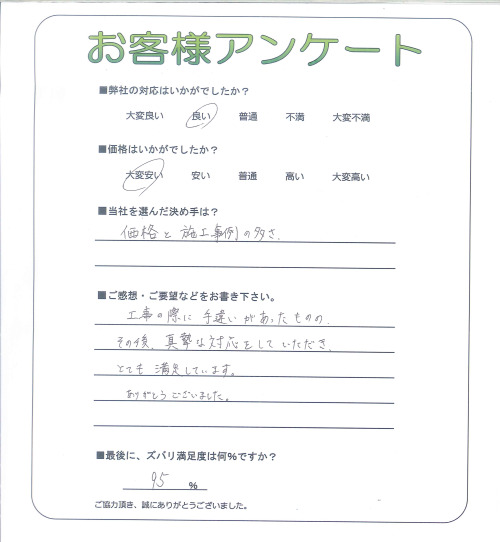 お客様アンケート
■弊社の対応はいかがでしたか？
大変良い 良い 普通 不満 大変不満
■価格はいかがでしたか？
大変安い 安い 普通 高い 大変高い
■当社を選んだ決め手は？
価格と施工事例の多さ.
■ご感想・ご要望などをお書き下さい。
工事の際に手違いがあったものの、
その後、真摯な対応をしていただき、
とても満足しています。
ありがとうございました。
■最後に、ズバリ満足度は何％ですか？
95 ％
ご協力頂き、誠にありがとうございました。